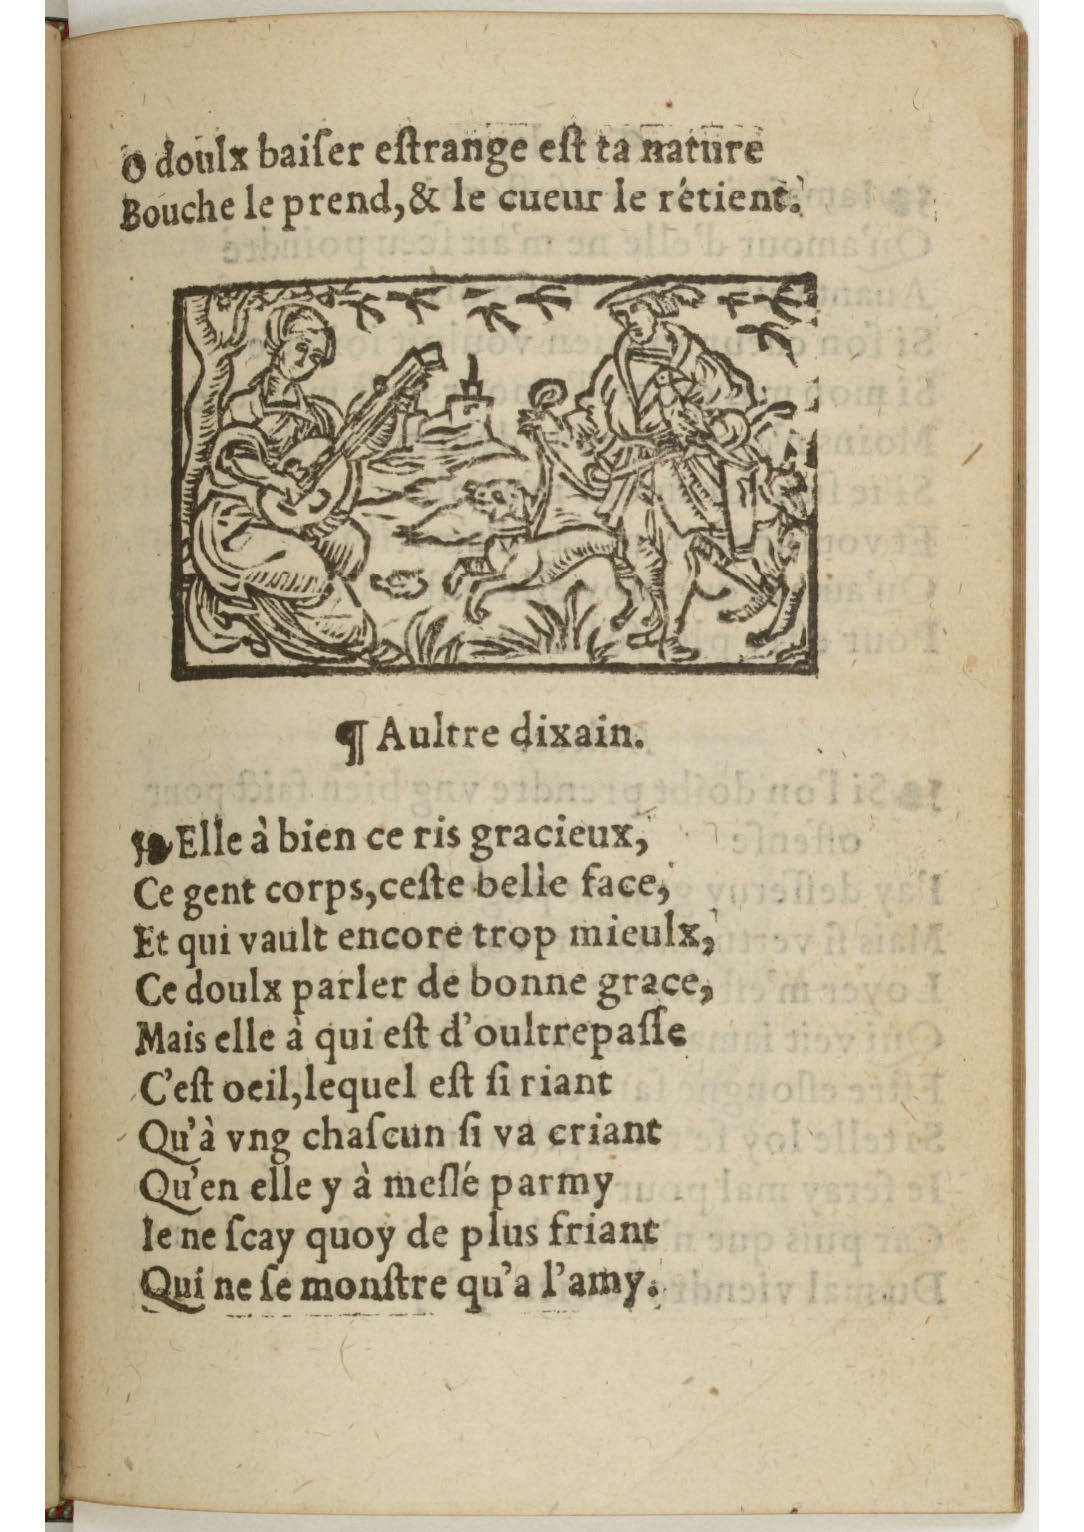 O doulx baiſer eſtrange eſt ta nature
Bouche le prend, & le cueur le rétient.
¶ Aultre dixain.
❧ Elle à bien ce ris gracieux,
Ce gent corps, ceſte belle face,
Et qui vault encore trop mieulx,
Ce doulx parler de bonne grace,
Mais elle à qui eſt d'oultrepaſſe
C'eſt oeil, lequel eſt ſi riant
Qu'à vng chaſcun ſi va criant
Qu'en elle y à meſlé parmy
Ie ne ſcay quoy de plus friant
Qui ne ſe monſtre qu'a l'amy.